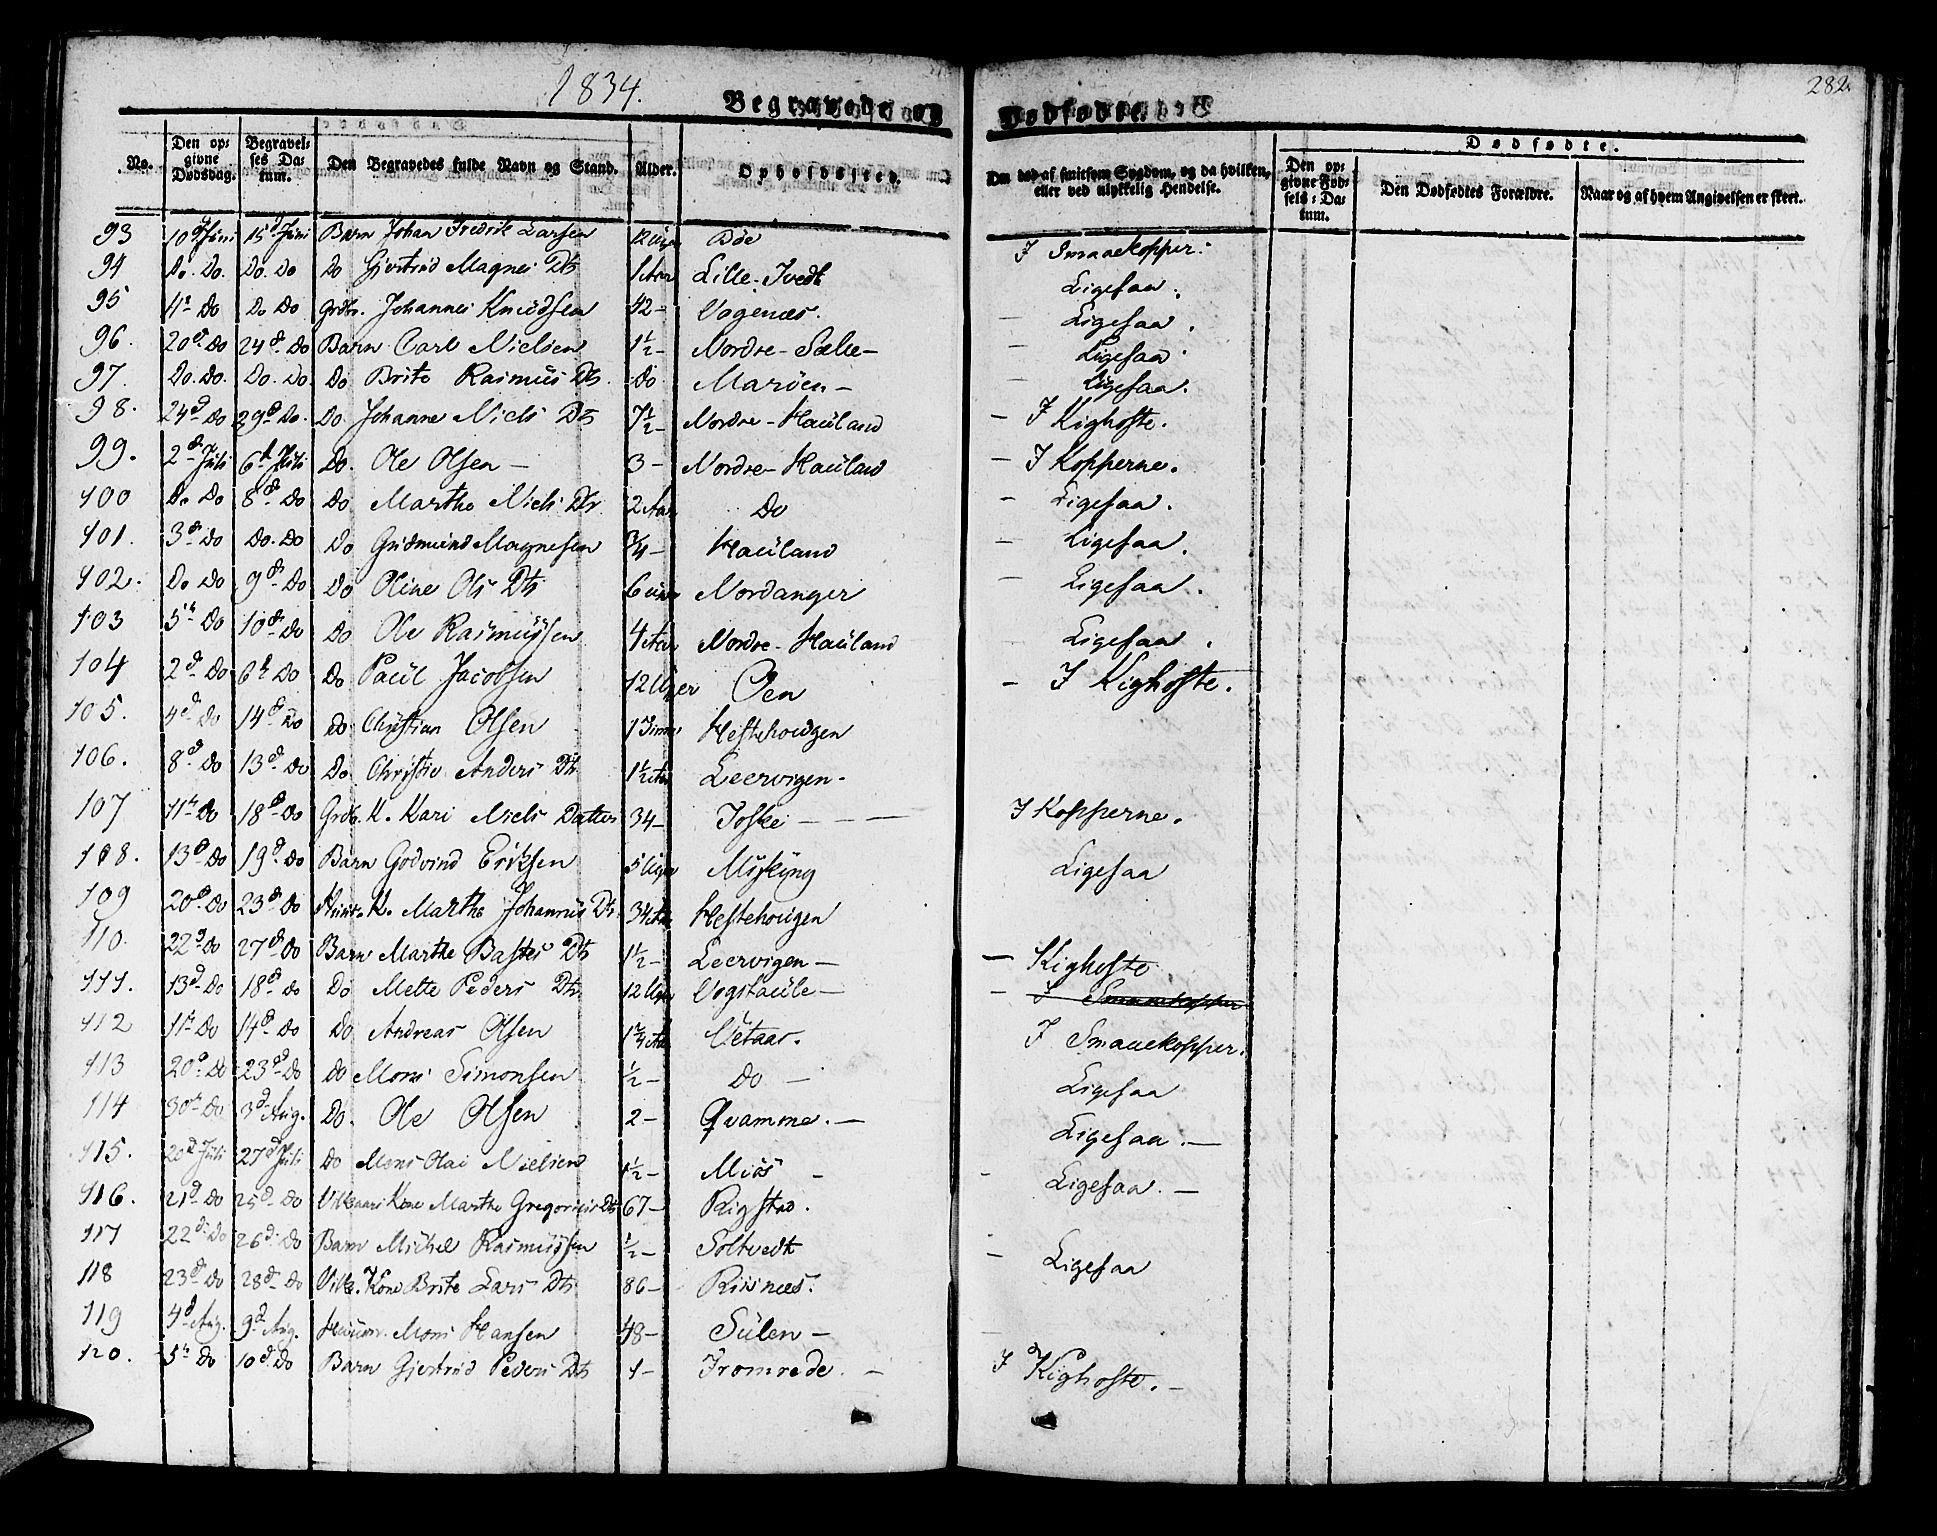 1834.
282.
Begravede og Dødfødte.
No. Den opgivne Dødsdag. Begravelses Datum. Den Begravedes fulde Navn og Stand. Alder. Opholdssted. Om død af smitsom Sygdom, og da hvilken, eller ved ulykkelig Hendelse. Dødfødte. Den opgivne Fødsels-Datum. Den Dødfødtes Forældre. Naar og af hvem Angivelsen er skeet.
93 10d Juni 15d Juni Barn Johan Fredrik Larsen 12 Uger Bøe I Smaaekopper.
94 Do. Do. Do. Do Do Gjertrud Magnes Dtr 1 Aar Lille-Tvedt Ligesaa.
95 11te Do Do Do Grdbr. Johannes Knudsen 42 – Vogenæs. – Ligesaa.
96. 20de Do 24de Do Barn Carl Nielsen 1½ – Nordre-Sælie – – Ligesaa.
97. Do. Do. Do. Do. Do Brite Rasmus Dtr. Do Marøen – – Ligesaa.
98. 24d Do 29d Do. Do. Johanne Niels Dtr 7½ – Nordre-Hauland – I Kighoste.
99. 2d Juli 6te Juli Do. Ole Olsen – 3 – Nordre-Hauland – I Kopperne.
100 Do Do 8de Do Do Marthe Niels Dtr 2 Aar Do – Ligesaa.
101. 3d Do Do. Do Do Gudmund Magnesen ¾ – Hauland – Ligesaa.
102. Do Do 9de Do Do Oline Ols Dtr 6 Uger Nordanger – Ligesaa.
103 5te Do 10de Do Do Ole Rasmussen 4 Aar Nordre-Hauland – Ligesaa.
104 2d Do 6te Do Do Paul Jacobsen 12 Uger Øen – I Kighoste.
105. 4de Do 14de Do Do Christian Olsen 1 Time Heftehougen
106. 8d Do 13d Do Do. Christie Anders Dtr 1½ Aar Leervigen.
107 11te Do 18de Do Grdb. K. Kari Niels Datter 34 – Toske – – – I Kopperne.
108. 13d Do 19d Do Barn Godvind Eriksen 5 Uger Myking Ligesaa
109 20de Do 23de Do K. Marthe Johannes Dtr 34 Aar Heftehougen
110. 22d Do 27de Do Barn Marthe Bastes Dtr 1½ – Leervigen – – Kighoste.
111. 13d Do 18de Do Do Mette Peders Dtr 12 Uger Vogstaule – – I Smaaekopper
112 11te Do 14d Do Do Andreas Olsen 1¾ Aar Vetaas. I Smaaekopper.
113 20de Do 23de Do Do Mons Simonsen ½ – Do – Ligesaa
114 30te Do 3d Aug. Do. Ole Olsen 2 – Qvamme. – Ligesaa. –
115. 20d Juli 27d Juli Do Mons Olai Nielsen 1½ – Miøs – – Ligesaa. –
116. 21d Do 25d Do Vilkaars Kone Marthe Gregorius Dtr 67 – Rigstad.
117 22d Do 26d Do Barn Michel Rasmussen ½ – Soltvedt – Ligesaa
118 23de Do 28d Do Vilk. Kone Brite Lars Dtr 86 – Risnæs.
119 4d Aug. 9d Aug. Huusm. Mons Hansen 48 – Sulen –
120. 5te Do 10d Do Barn Gjertrud Peders Dtr 1 – Fromrede. – I Kighoste. –